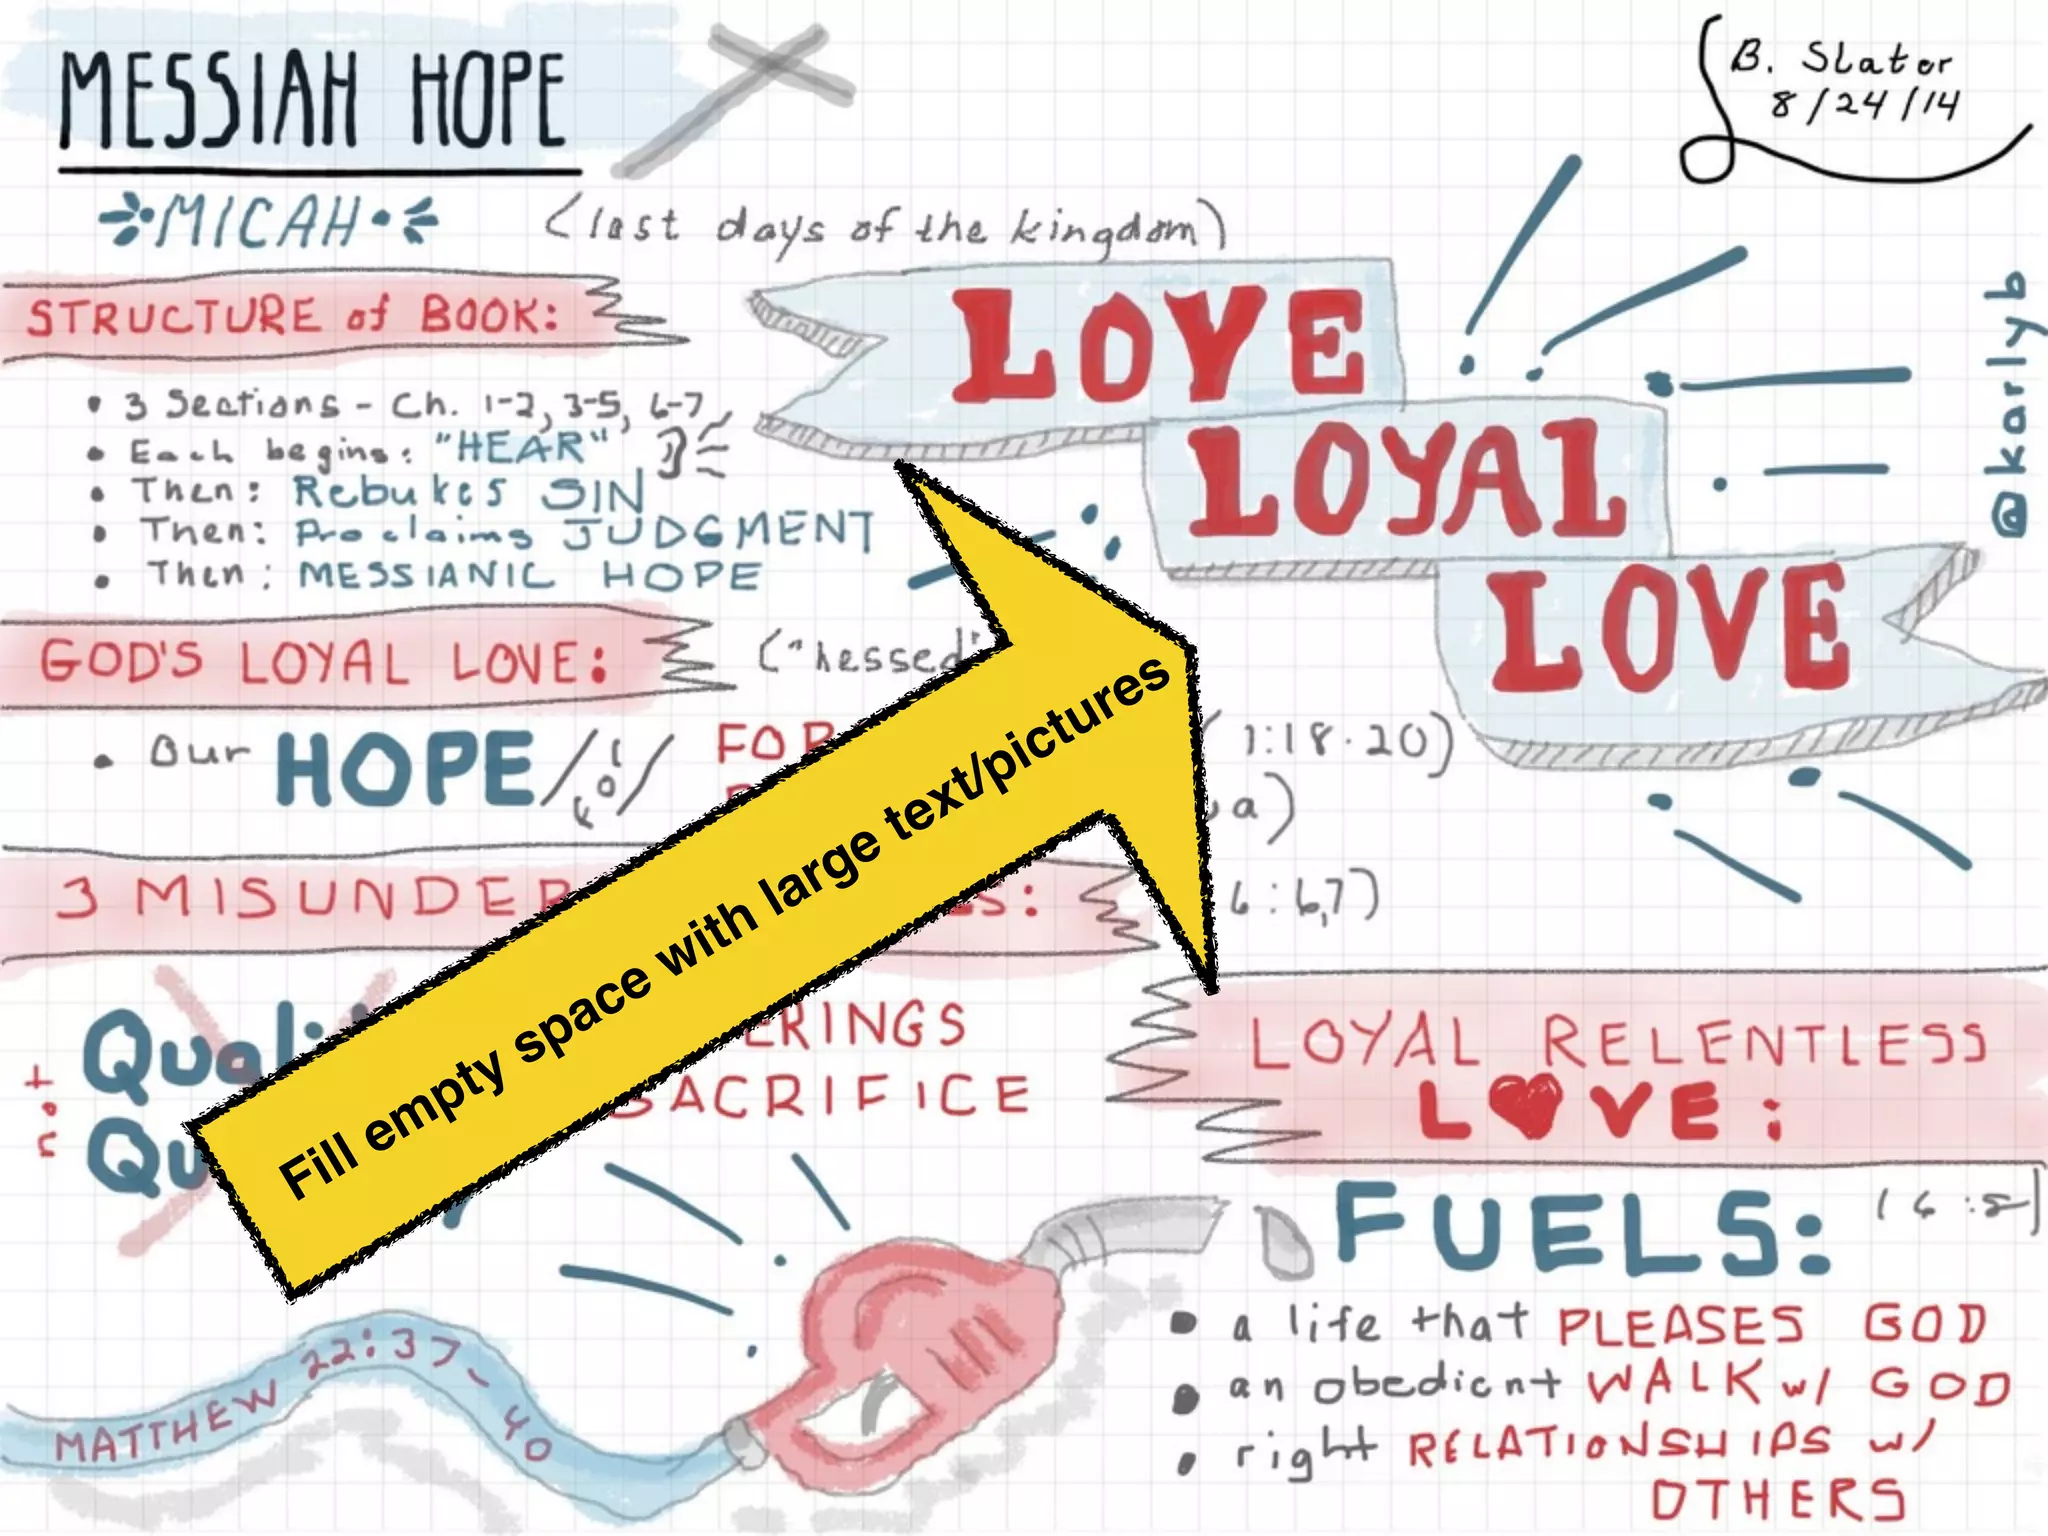 MESSIAH HOPE
B. Slater
8/24/14
MICAH
(last days of the kingdom)
@karlyb
STRUCTURE of BOOK:
LOVE
LOYAL
LOVE
• 3 Sections - Ch. 1-2, 3-5, 6-7
• Each begins: "HEAR"
• Then: Rebukes SIN
• Then: Proclaims JUDGMENT
• Then: MESSIANIC HOPE
GOD'S LOYAL LOVE:
("hessed"
• Our HOPE
1:18-20)
a)
3 MISUNDER
6:6,7)
Fill empty space with large text/pictures
not
ERINGS
SACRIFICE
LOYAL RELENTLESS
L❤VE:
FUELS:
• a life that PLEASES GOD
• an obedient WALK w/ GOD
• right RELATIONSHIPS w/
OTHERS
MATTHEW 22:37-40